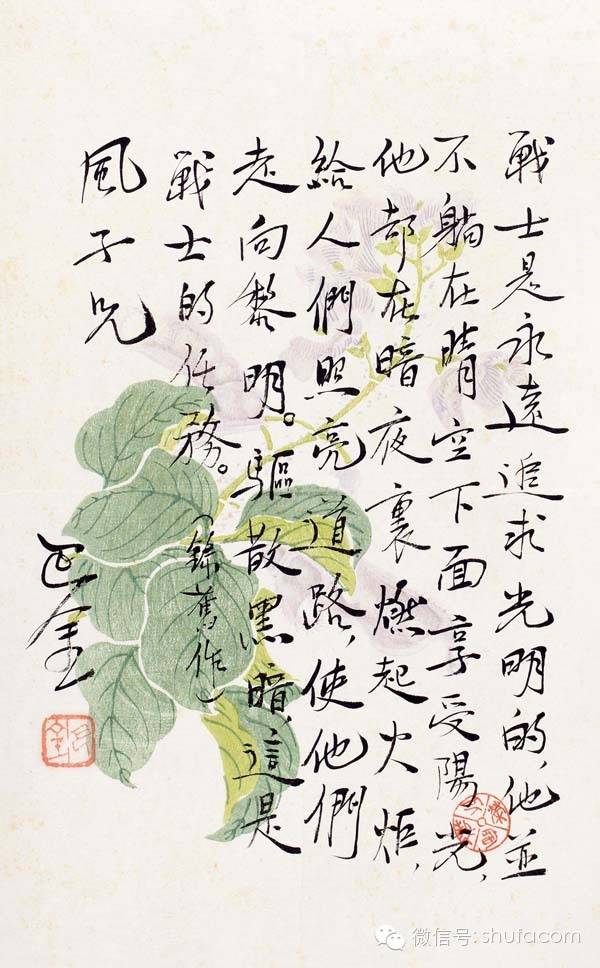 戰士是永遠追求光明的，他並
不躺在晴空下面享受陽光，
他却在暗夜裏燃起火炬，
給人們照亮道路，使他們
走向黎明。驅散黑暗，這是
戰士的任務。
（錄舊作）
風子兄
巴金
微信号:shufacom